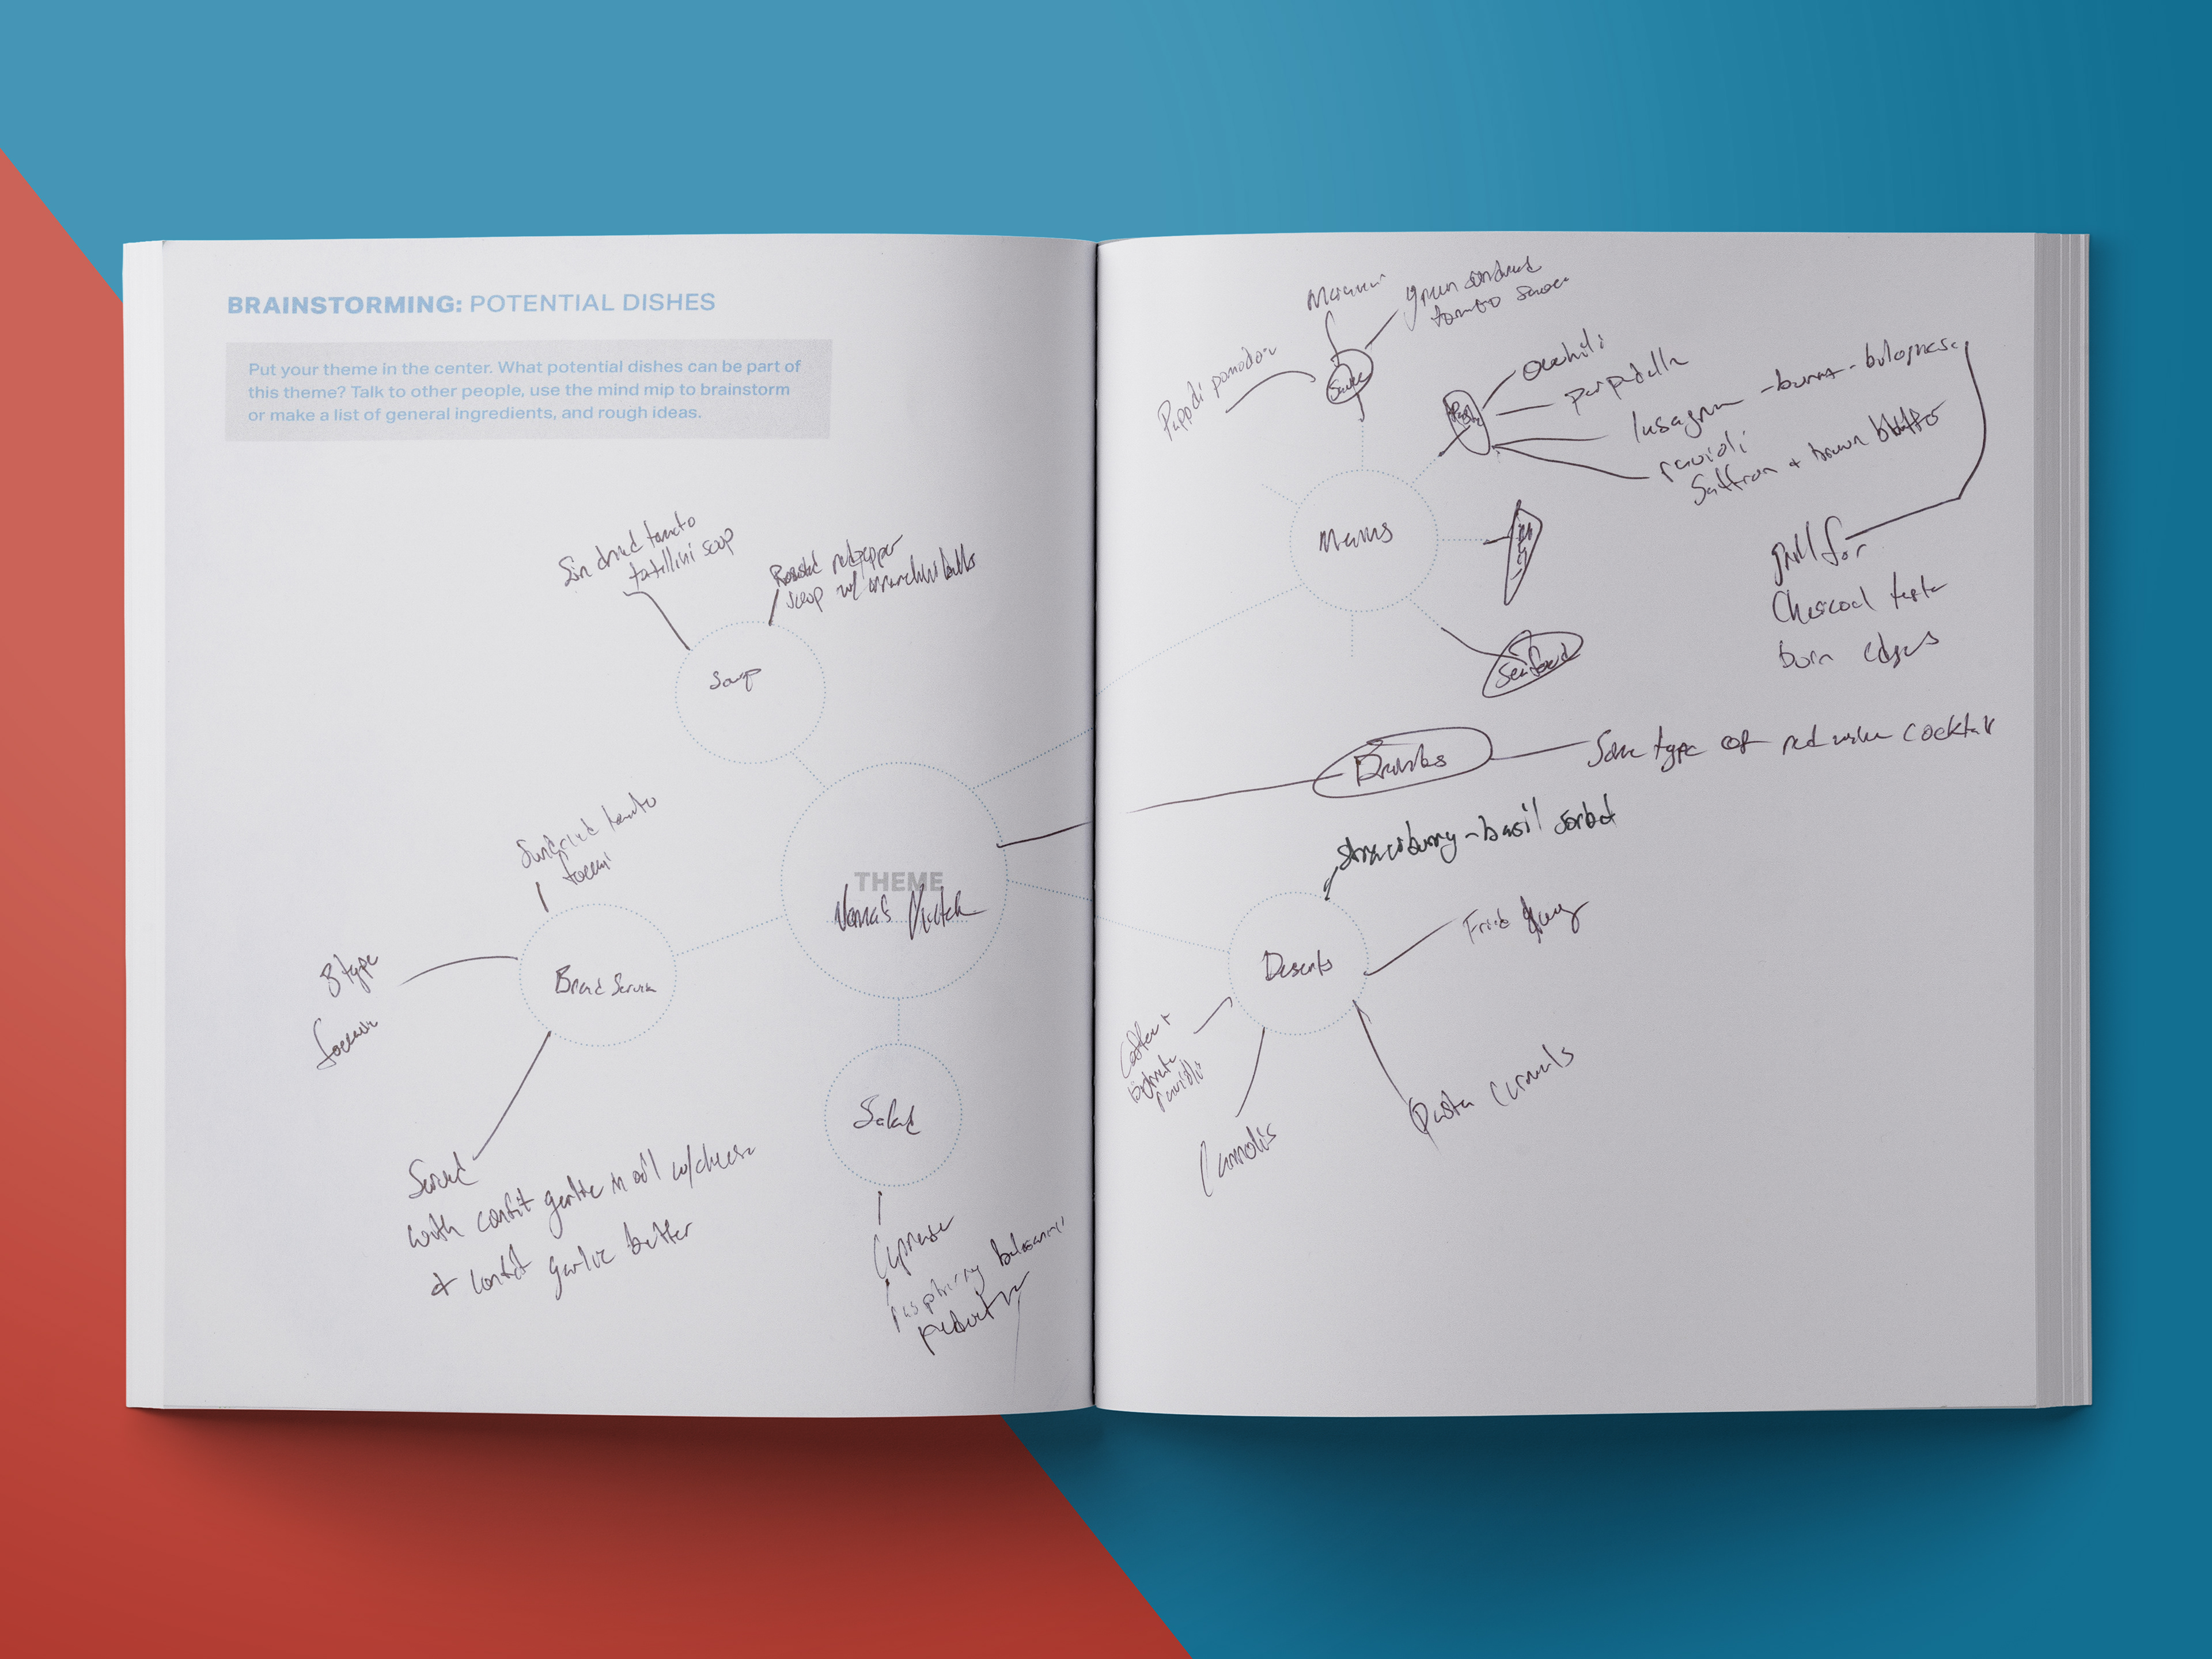 BRAINSTORMING: POTENTIAL DISHES
Put your theme in the center. What potential dishes can be part of
this theme? Talk to other people, use the mind mip to brainstorm
or make a list of general ingredients, and rough ideas.
Sun dried tomato
soup
Roasted red pepper
soup w/
Soup
Sundried tomato
3 type
Bread Service
THEME
Nonna's
Served
with confit garlic in oil w/cheese
+ confit garlic butter
Salad
raspberry balsamic
Pappa di pomodoro
green sundried
tomato sauce
Sauce
lasagna - burnt - bolognese
ravioli
Saffron + brown
Mains
grill for
Charcoal taste
burn edges
Seafood
Drinks
Some type of red wine cocktail
strawberry-basil sorbet
Deserts
Fried
Coffee +
ravioli
Cannolis
Pasta